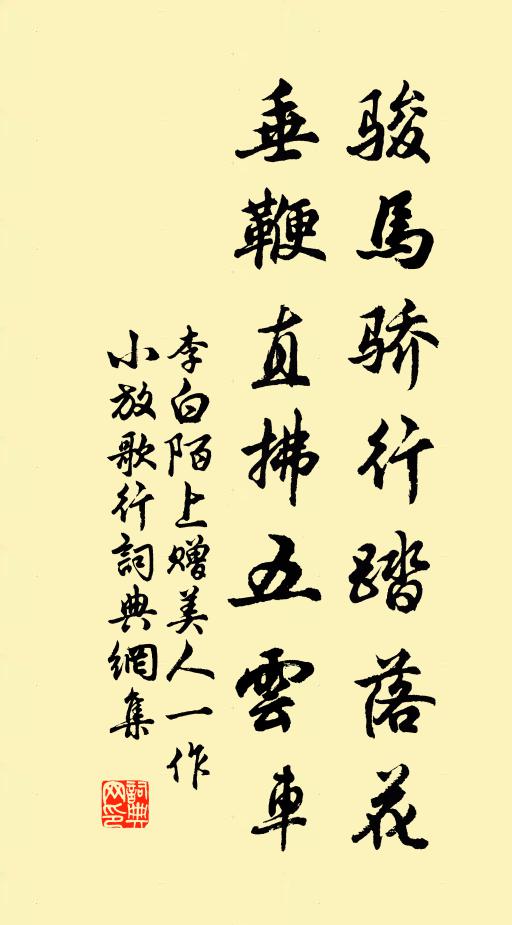 骏馬骄行踏落花
垂鞭直拂五雲車
李白陌上赠美人一作
小放歌行詞典網集
詞典
网印